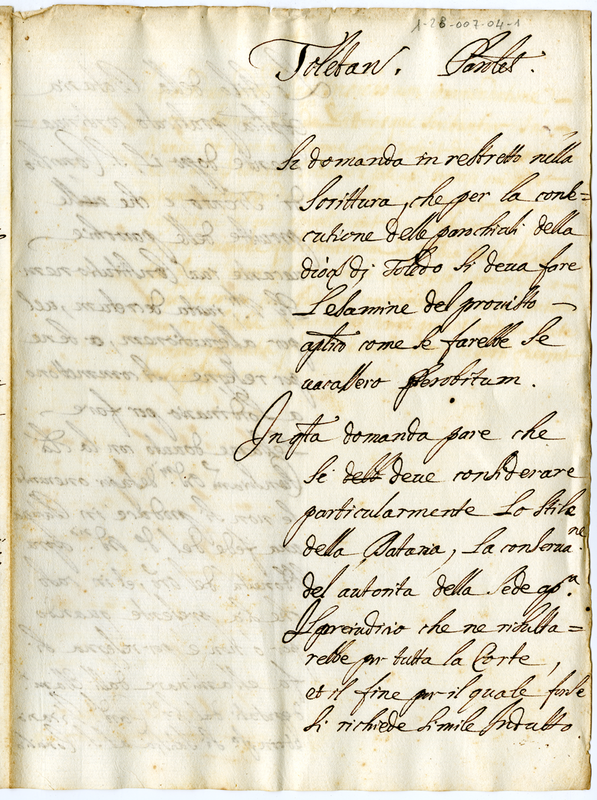 1-28-007-04-1
Toletan. Paroles.
Se domanda in restretto nella
Scrittura, che per la conse=
cutione delle parochiali della
dioqs di Toledo si deva fare
L'esamine del provisto
aplico come se farebbe se
vacassero per obitum.
In qsta domanda pare che
si deve considerare
particularmente Lo stile
della Dataria, La conserva.ne
del autorita della Sede ap.ca
Il preiudicio che ne risulta=
rebbe pr tutta la Corte,
et il fine pr il quale forse
si richiede simile Indulto